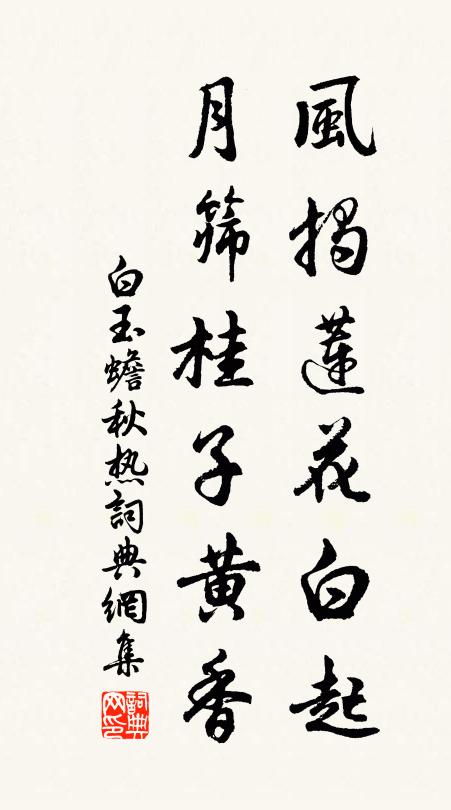 風揭蓮花白起
月筛桂子黃香
白玉蟾秋热詞典網集
詞典網印